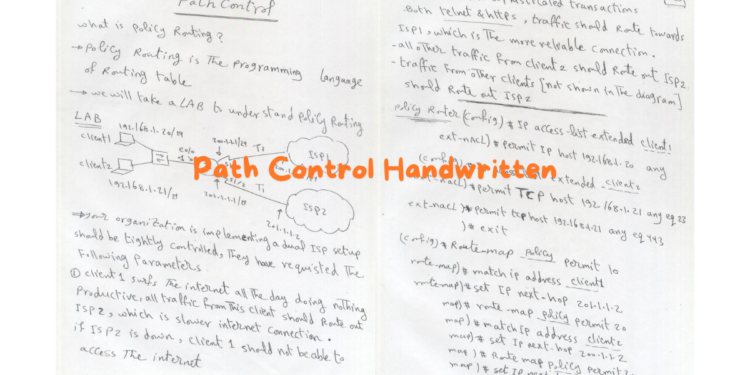 Path Control
what is policy Routing?
→ policy Routing is The programming Language
of Routing table
→ we will take a LAB to understand policy Routing
LAB
192.168.1.20/24
client1
client2
192.168.1.21/24
e0/0
200.1.1.1/24
T1
ISP1
ISP2
201.1.1.2
Path Control Handwritten
⇒ your organization is implementing a dual ISP setup
should be tightly controlled, They have requisted The
Following Parameters
① client 1 surfs The internet all the day doing nothing
Productive, all traffic From This client should Route out
ISP2, which is slower internet connection.
if ISP2 is down, client 1 should not be able to
access The internet
transactions
Both telnet & https, traffic should Route towards
ISP1, which is The more reliable connection.
- all other traffic From client 2 should Route out ISP2
- traffic From other clients [not shown in The diagram]
should Route out ISP2
Policy Router (config) # IP access-list extended client1
ext-nacl) # permit IP host 192.168.1.20 any
extended client2
permit TCP host 192.168.1.21 any eq 23
ext-nacl) # permit tcp host 192.168.1.21 any eq 443
) # exit
(config) # Route-map policy permit 10
route-map) # match ip address client1
route-map) # set IP next-hop 201.1.1.2
map) # route-map policy permit 20
map) # match IP address client2
map) # set IP next-hop 200.1.1.2
map) # Route map policy permit
map) # set IP